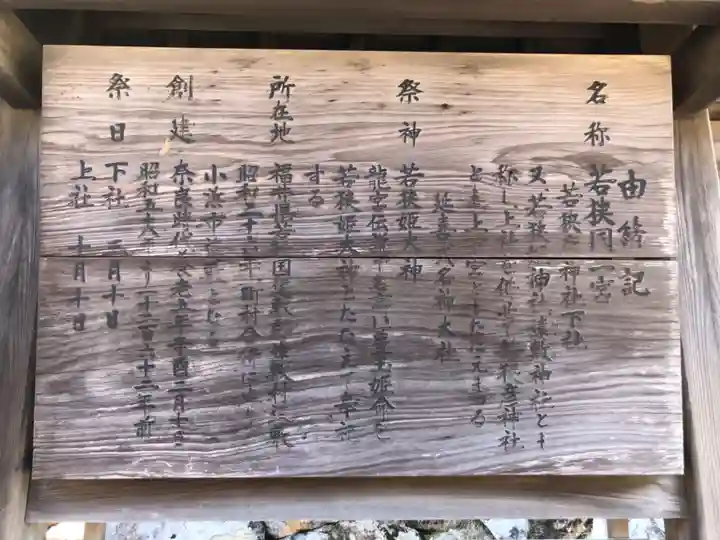 由緒記
名称 若狭国一宮
若狭 神社下社
又、若狭 神社 遠敷神社と
称し上社を併せ 若狭彦神社
とも上 宮と を る
延喜式名神大社
祭神 若狭姫大神
龍宮伝 を 玉姫命を
若狭姫大神とたたえ 奉祀
する
所在地 福井県若狭国遠敷郡遠敷村 遠敷
昭和二十六年町村合併により
小浜市遠敷となる
創建 奈良時代養老五年辛酉二月十日
昭和五十八年より千二百六十二年前
祭日 下社 三月十日
上社 十月十日